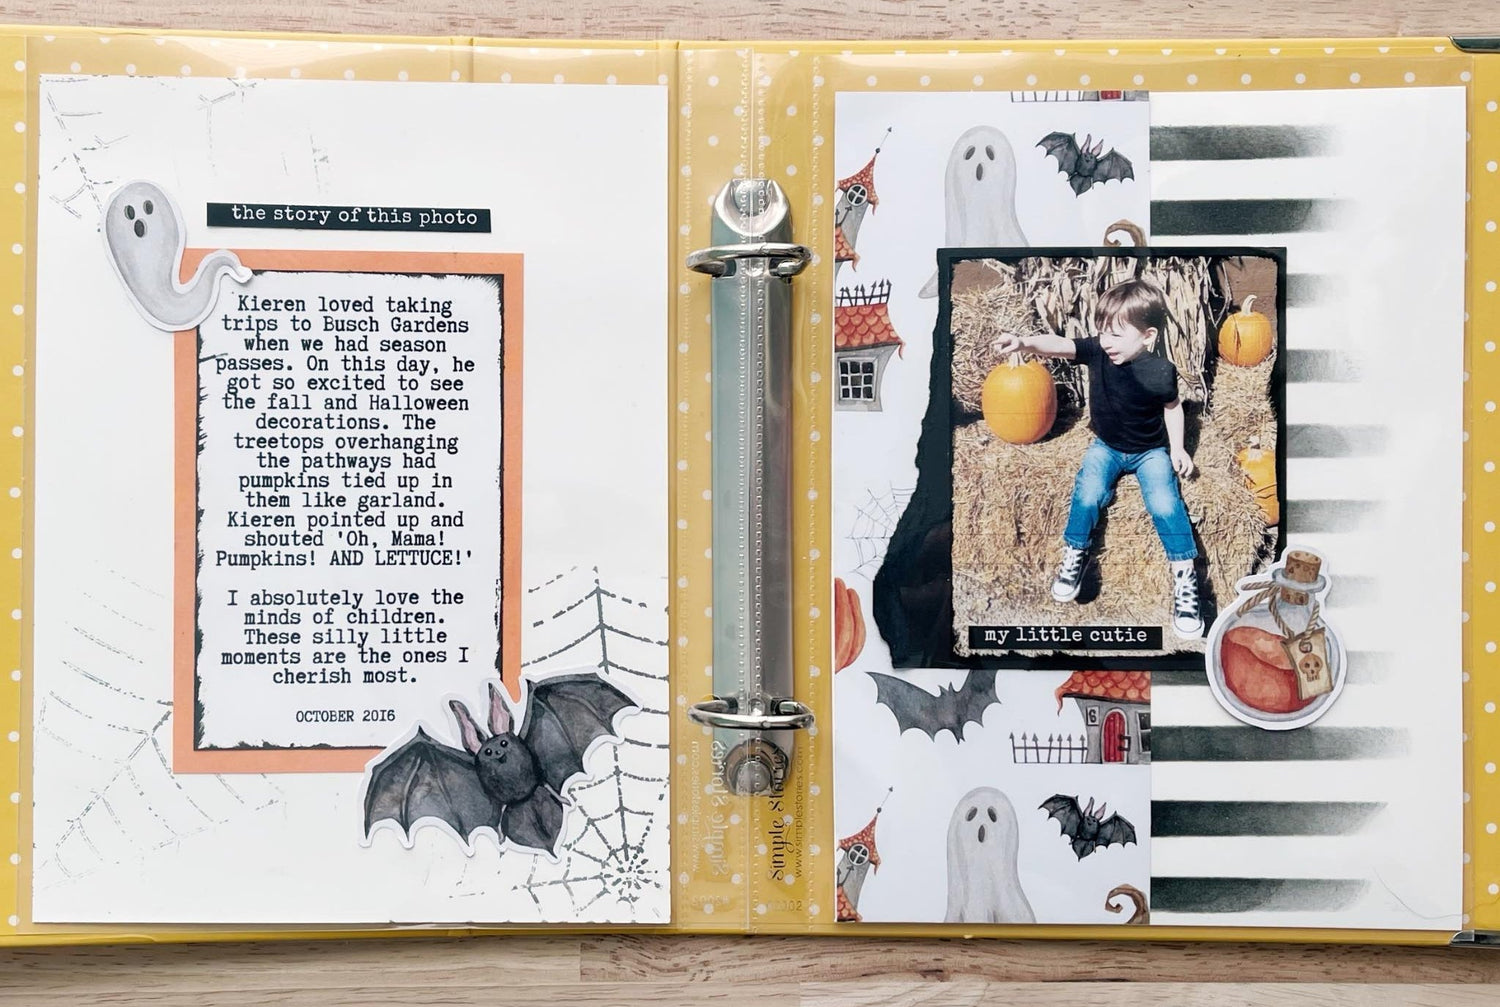 the story of this photo
Kieren loved taking
trips to Busch Gardens
when we had season
passes. On this day, he
got so excited to see
the fall and Halloween
decorations. The
treetops overhanging
the pathways had
pumpkins tied up in
them like garland.
Kieren pointed up and
shouted 'Oh, Mama!
Pumpkins! AND LETTUCE!'
I absolutely love the
minds of children.
These silly little
moments are the ones I
cherish most.
OCTOBER 2016
Simple Stories
www.simplestories.com
Simple Stories
www.simplestories.com
my little cutie
6